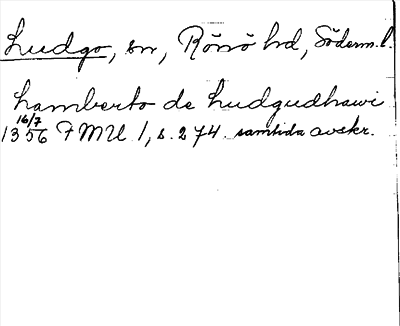 Ludgo, sn, Rönö hd, Söderm. l.
Lamberto de Ludgudhawi
16/7
1356 FMU 1, s. 274. samtida avskr.